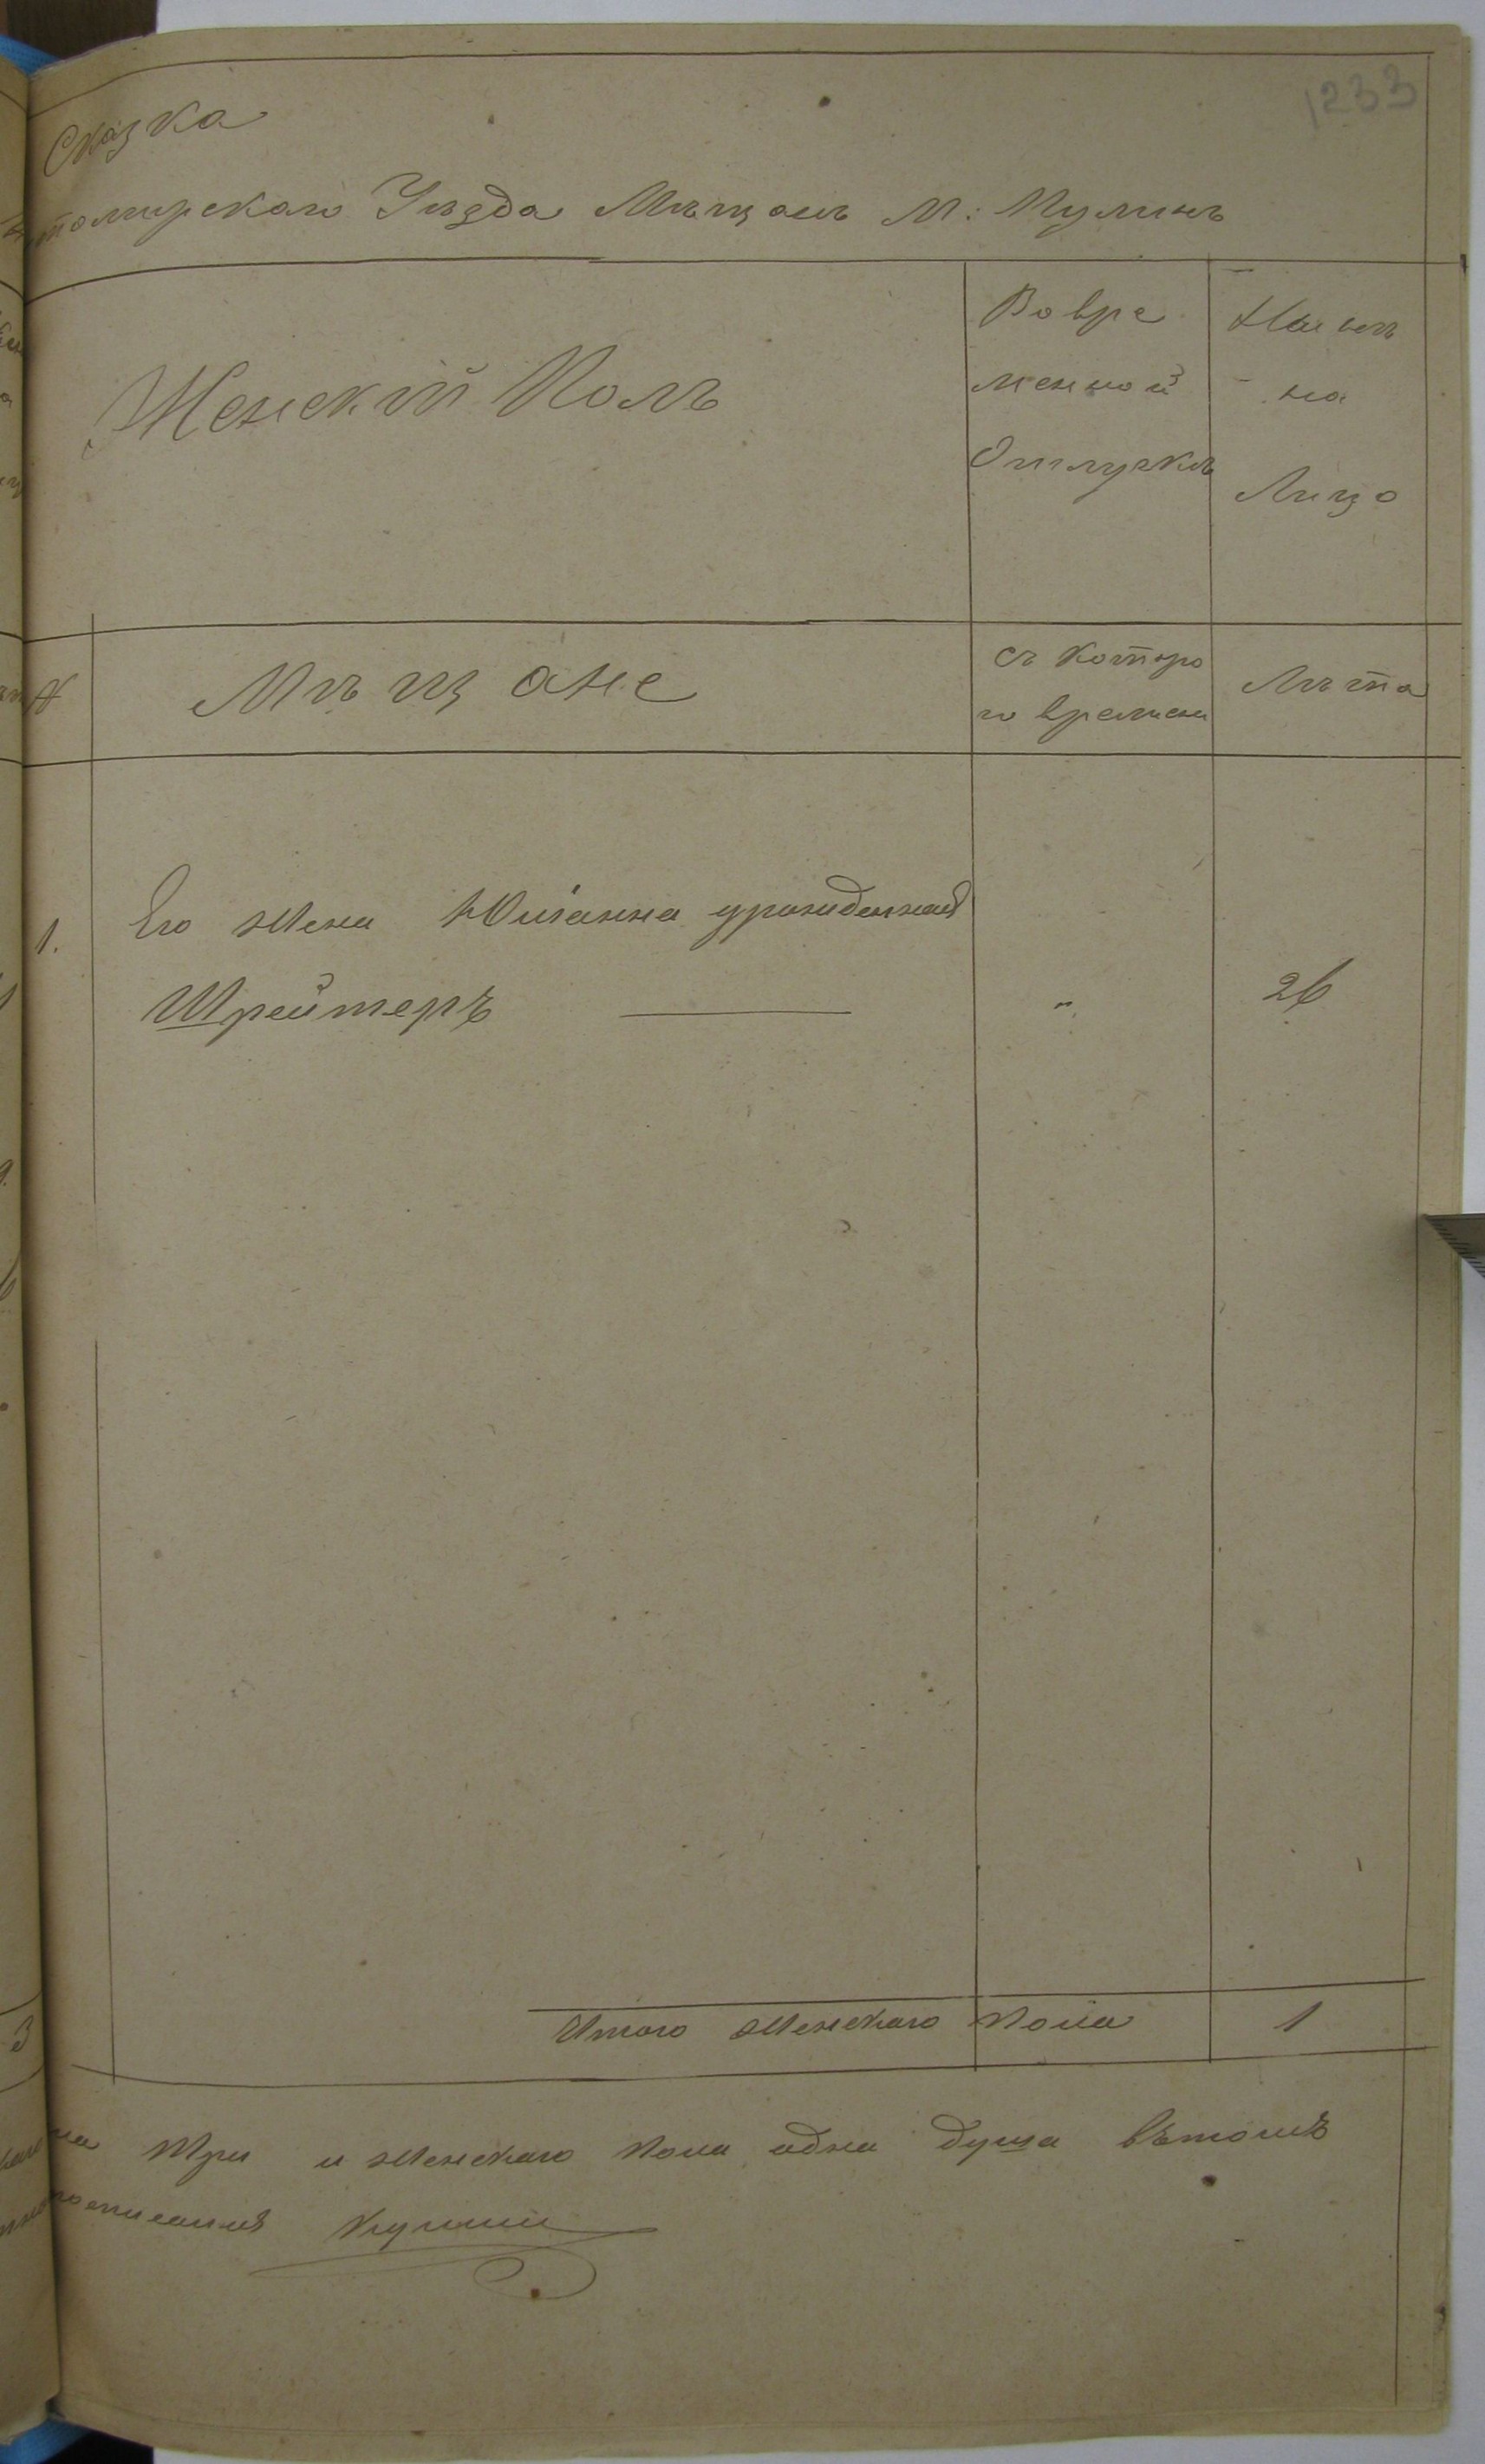 1233
Сказка
томирскаго Уѣзда Мѣщанъ М: Пулинъ
Женскій Полъ
Во вре
менной
Отлучкѣ
Нынѣ
на
Лицо
№
Мѣщане
съ которо
го времени
Лѣта
1.
Его жена Юлiанна урожденная
Шрейтеръ
"
26
Итого женскаго пола
1
на три и женскаго пола одна душа вътомъ